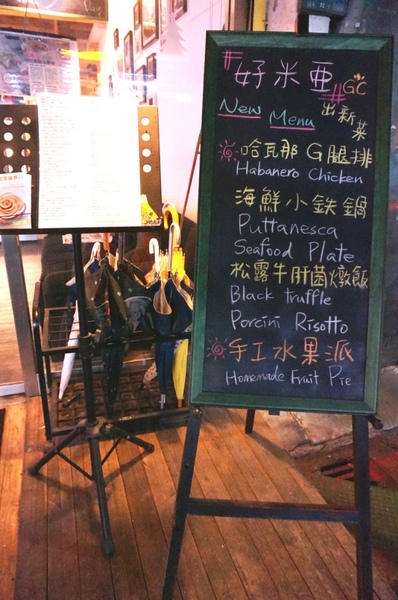 #好米亞
GC
New Menu
#出新菜
哈瓦那G腿排
Habanero Chicken
海鮮小鉄鍋
Puttanesca
Seafood Plate
松露牛肝菌燉飯
Black truffle
Porcini Risotto
手工水果派
Homemade Fruit Pie